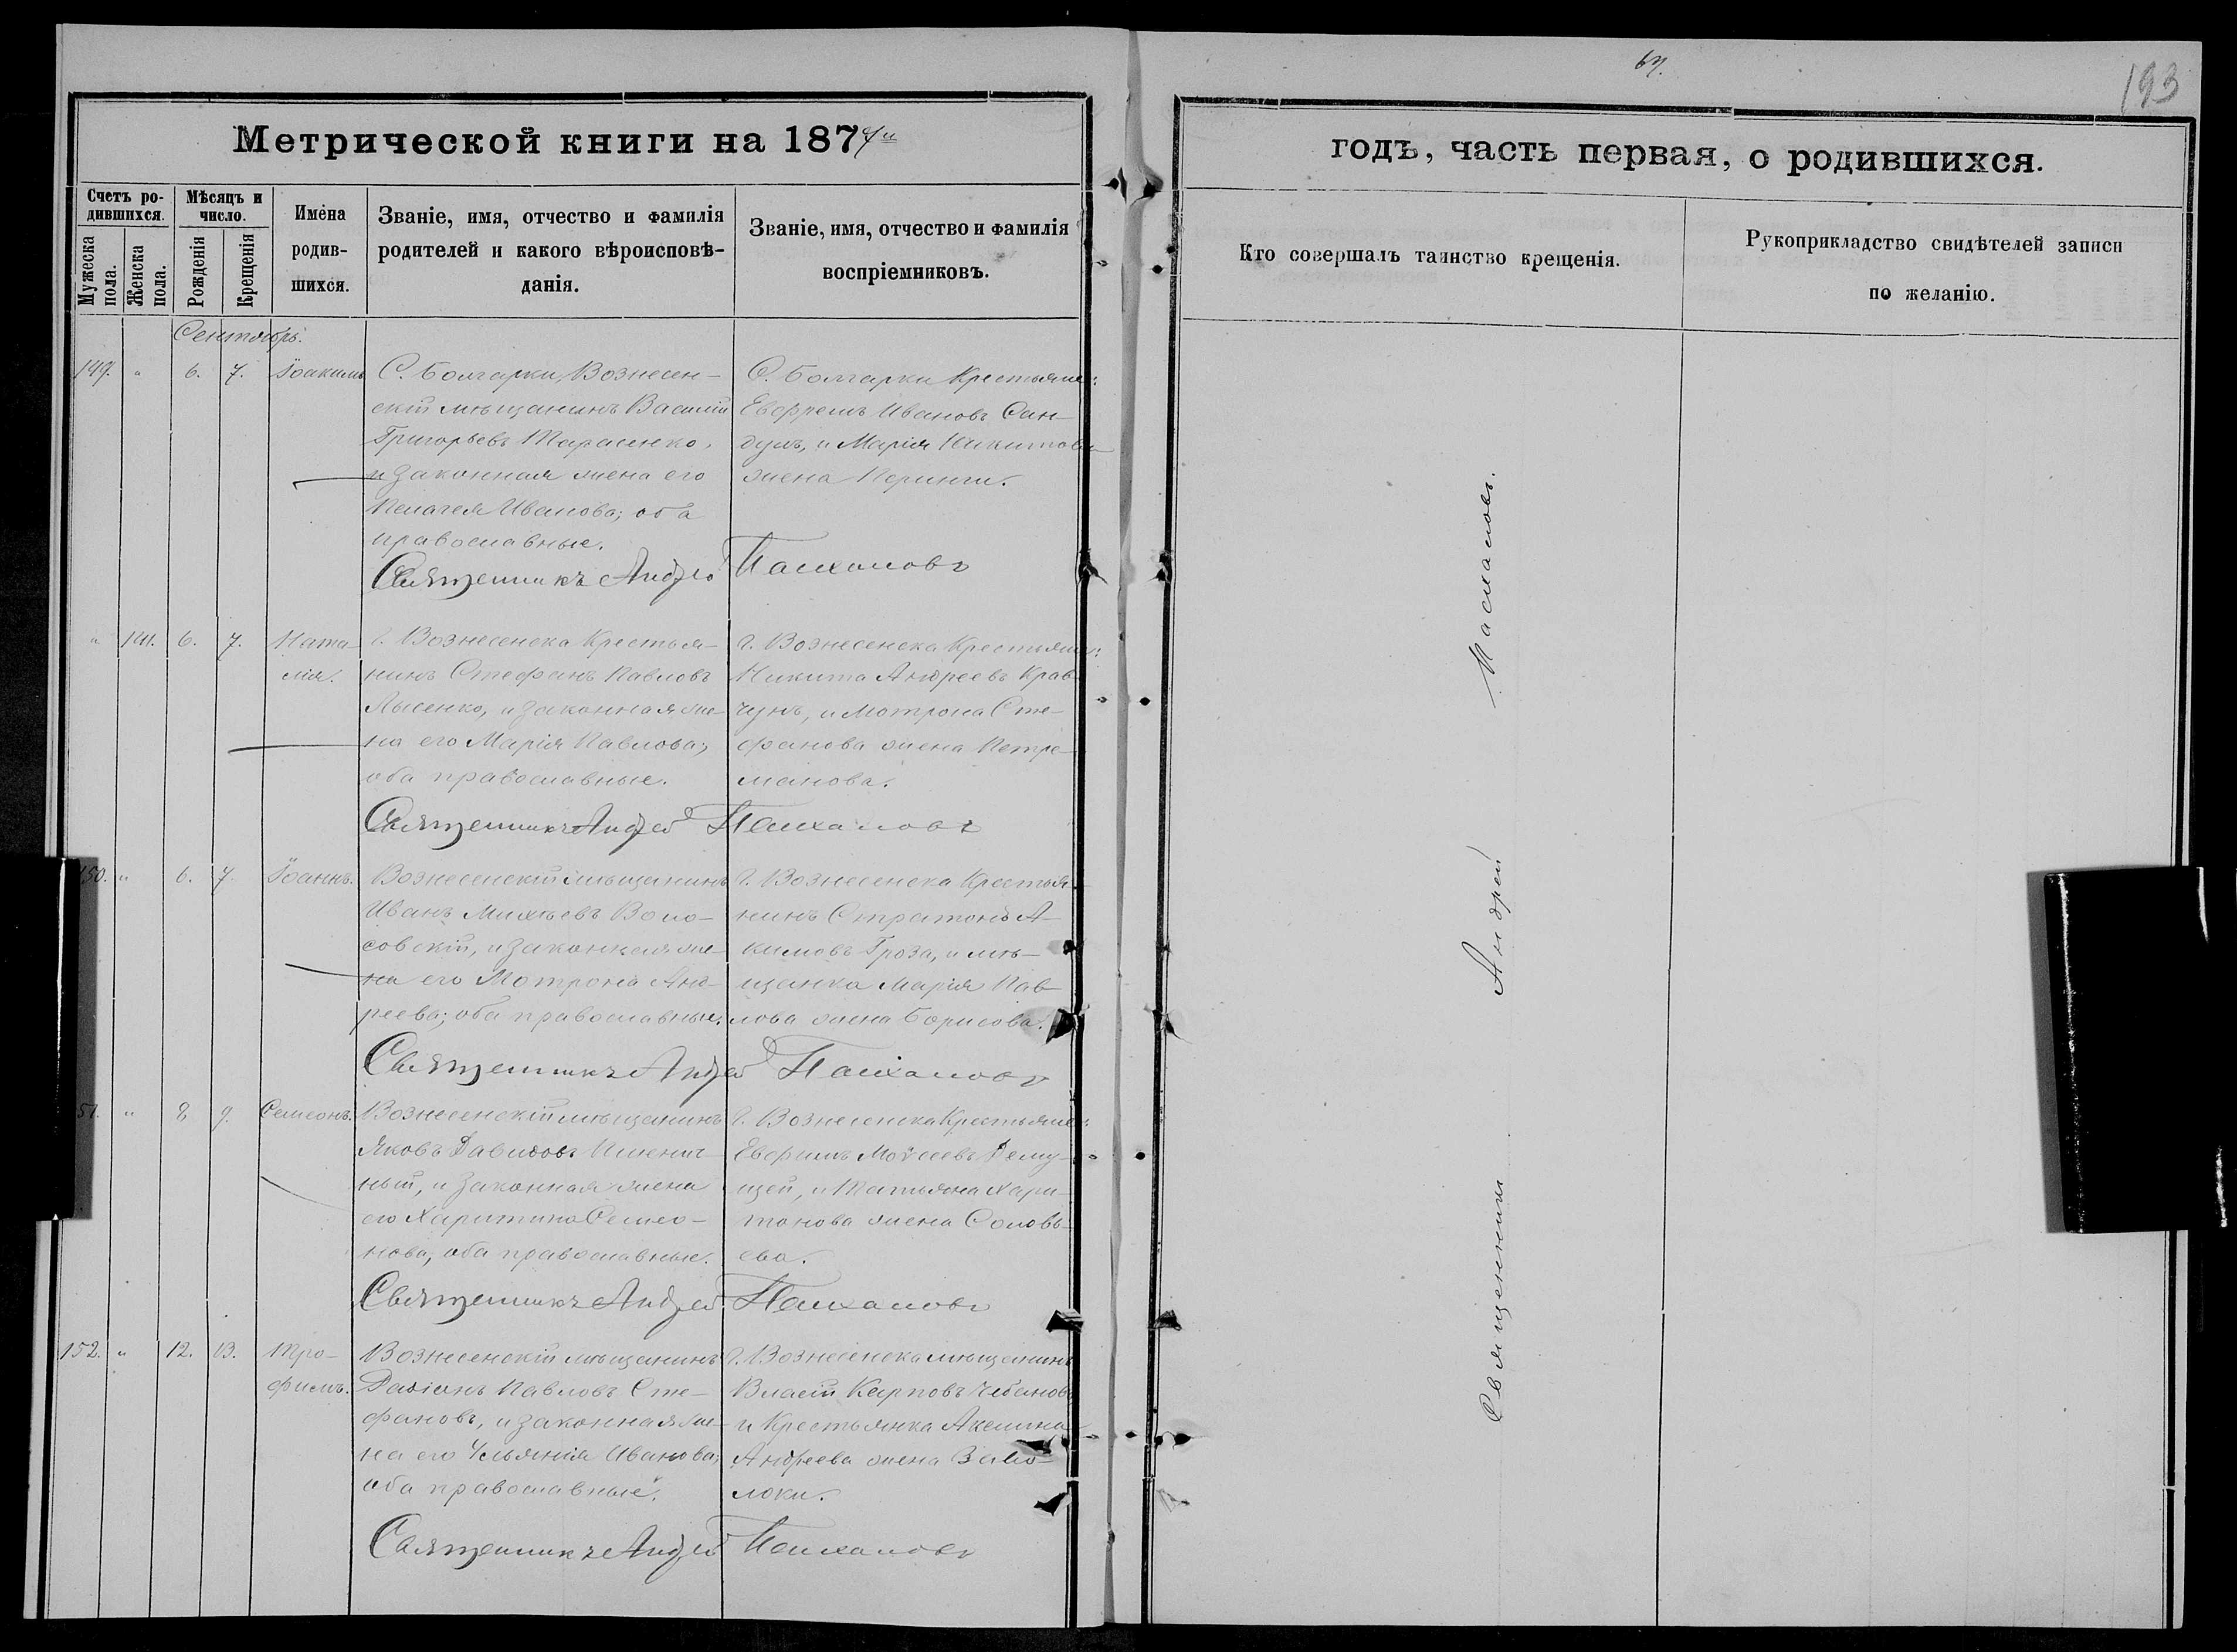 193
Метрической книги на 187
годъ, часть первая, о родившихся.
Счетъ ро-
дившихся.
Мужеска
пола.
Женска
пола.
Мѣсяцъ и
число.
Рожденія
Крещенія
Имена
родив-
шихся.
Званіе, имя, отчество и фамилія
родителей и какого вѣроисповѣ-
данія.
Званіе, имя, отчество и фамилія
воспріемниковъ.
Кто совершалъ таинство крещенія.
Рукоприкладство свидѣтелей записи
по желанію.
Сентябрь.
149. " 6. 7. Іоакимъ
С. Болгарки, Вознесен-
скій мѣщанинъ Василій
Григорьевъ Тарасенко,
и законная жена его
Пелагея Иванова; оба
православные.
С. Болгарки Крестьяне:
Евфремъ Ивановъ Сан-
дулъ, и Марія Никитова
жена
Священникъ Андрей
" 6. 7. Ната-
лія.
г. Вознесенска Крестья-
нинъ Стефанъ Павловъ
Лысенко, и законная же-
на его Марія Павлова;
оба православные.
г. Вознесенска Крестьяне:
Никита Андреевъ Крав-
чунъ, и Мотрона Сте-
фанова жена Петре-
манова.
Священникъ Андрей
150. " 6. 7. Іоаннъ.
Вознесенскій мѣщанинъ
Иванъ Михѣевъ Воло-
совскій, и законная же-
на его Мотрона Анд-
реева; оба православные.
г. Вознесенска Крестья-
нинъ Стратонъ А-
кимовъ Гроза, и мѣ-
щанка Марія Пав-
лова жена Борисова.
Священникъ Андрей
51. " 8. 9. Семеонъ.
Вознесенскій мѣщанинъ
Яковъ Давидовъ Пшенич-
ный, и законная жена
его Харитина Семео-
нова; оба православные.
г. Вознесенска Крестьяне:
Евфимъ Моѵсеевъ
и Татьяна Хари-
тонова жена Соловь-
ева.
Священникъ Андрей
152. " 12. 13. Тро-
фимъ.
Вознесенскій мѣщанинъ
Павловъ Сте-
фановъ, и законная же-
на его Ульянія Иванова;
оба православные.
г. Вознесенска мѣщанинъ
Власій Карповъ Чебановъ
и Крестьянка Акелина
Андреева жена Заво-
локи.
Священникъ Андрей
Священникъ Андрей